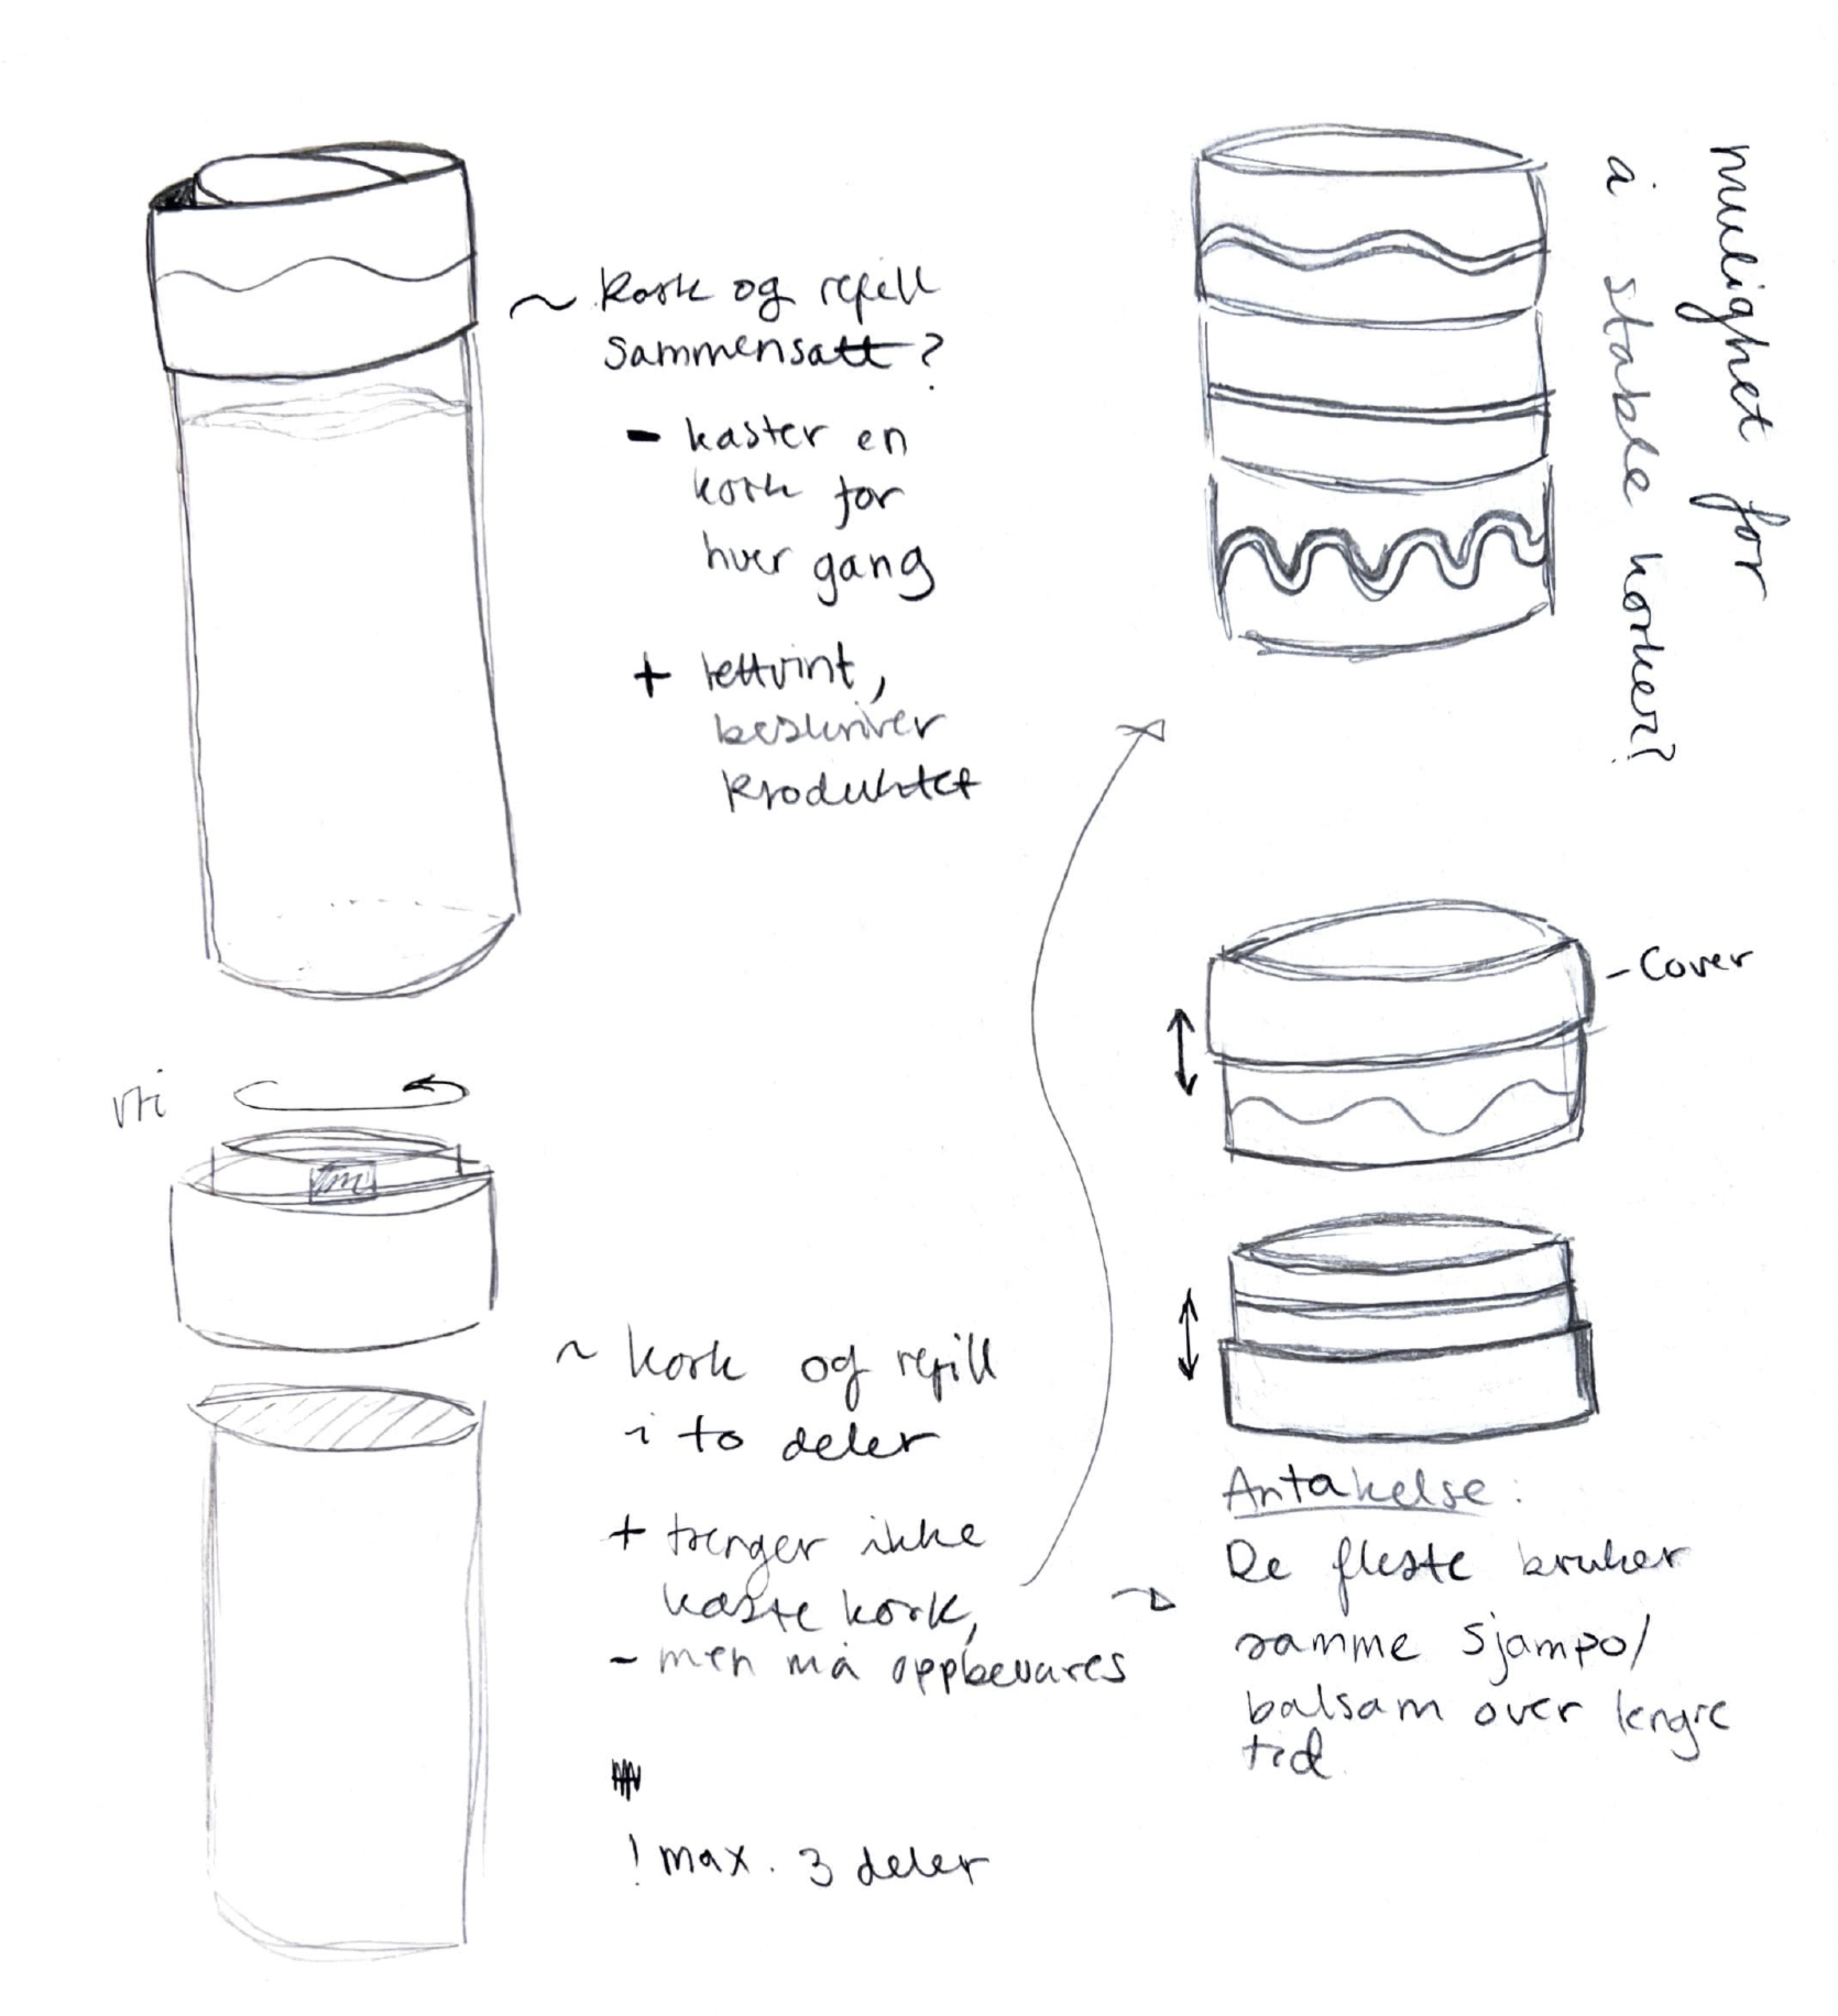 ~ kork og refill
sammensatt?
- kaster en
kork for
hver gang
+ lettvint,
beskriver
produktet
vri
~ kork og refill
i to deler
+ trenger ikke
kaste kork,
- men må oppbevares
! max. 3 deler
mulighet for
å stable korker?
- Cover
Antakelse:
De fleste bruker
samme sjampo/
balsam over lengre
tid.